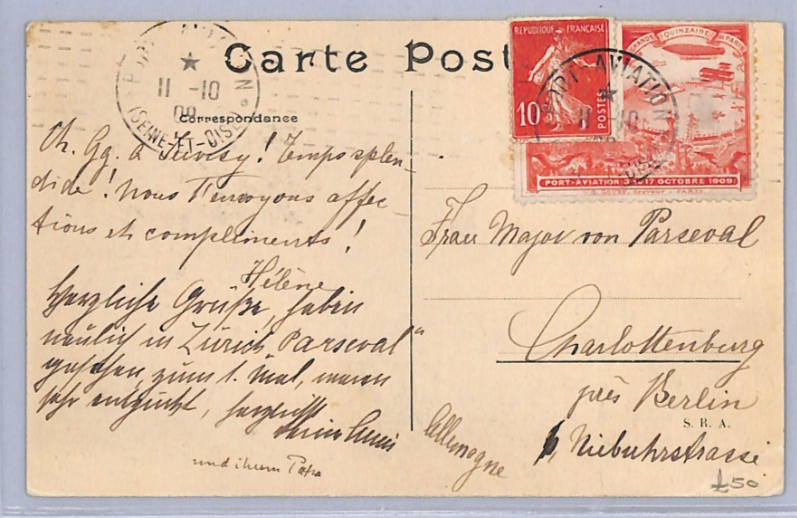 Carte Post
Correspondance
PORT-AVIATION
11 -10
09
(SEINE-ET-OISE)
REPUBLIQUE FRANÇAISE
10
POSTES
GRANDE QUINZAINE DE PARIS
PORT-AVIATION
11 -10
PORT-AVIATION 3 - 17 OCTOBRE 1909
Ch. Gg. à Juvisy! Temps splen-
dide! Nous t'envoyons affec
tions et compliments!
Hélène
Herzliche Grüße, haben
neulich in Zürich "Parseval"
gesehen zum 1. Mal, waren
sehr entzückt, herzlichst
und ihrem Papa
Frau Major von Parseval
Charlottenburg
près Berlin
S. R. A.
Niebuhrstrasse
Allemagne
£50